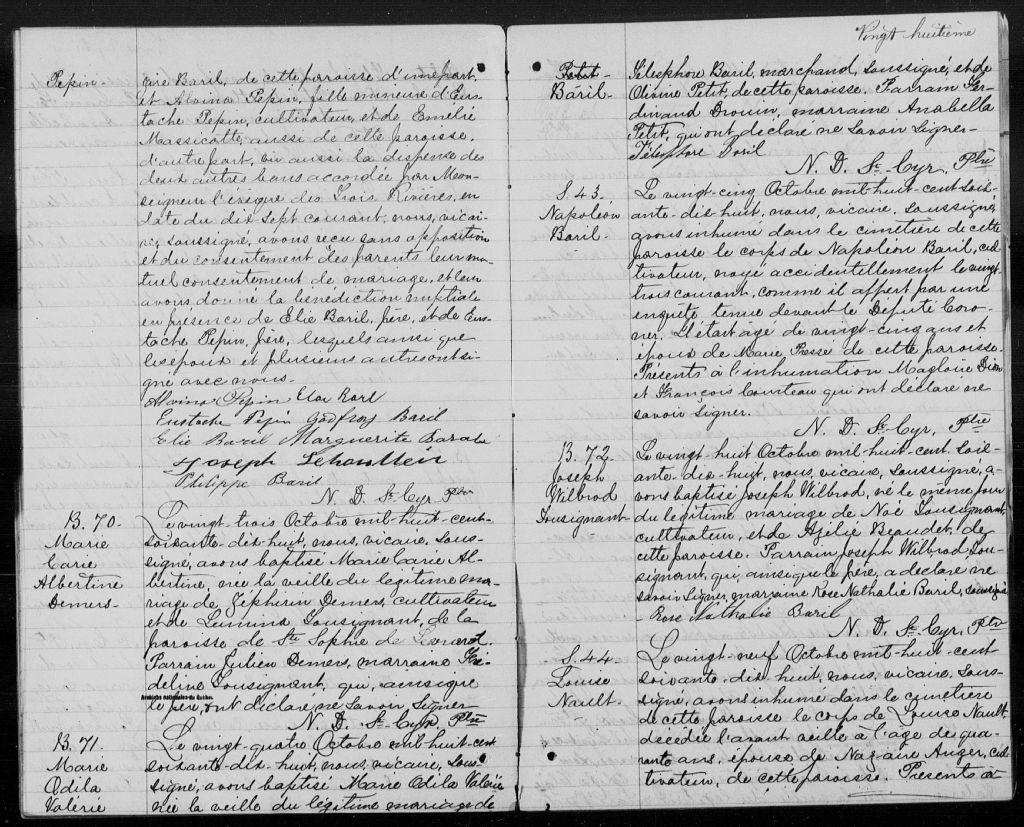 Pepin-
rie Baril, de cette paroisse d'une part,
et Alvina Pepin, fille mineure d'Eus-
tache Pepin, cultivateur, et de Emélie
Massicotte, aussi de cette paroisse,
d'autre part, vu aussi la dispense des
deux autres bans accordée par Mon-
seigneur l'évêque des Trois Rivières, en
date du dix sept courant, nous, vicai-
re, soussigné, avons reçu sans opposition
et du consentement des parents leur mu-
tuel consentement de mariage, et leur
avons donné la bénédiction nuptiale
en présence de Elie Baril, père, et de Eus-
tache Pepin, père, lesquels ainsi que
les époux et plusieurs autres ont si-
gné avec nous.
Alvina Pepin
Eustache Pepin Godfroy Baril
Elie Baril Marguerite
Joseph
Philippe Baril
N. D. St-Cyr, Ptre
B. 70-
Marie
Carie
Albertine
Demers-
Le vingt-trois Octobre mil-huit-cent-
soixante-dix-huit, nous, vicaire, sous-
signé, avons baptisé Marie Carie Al-
bertine, née la veille du légitime ma-
riage de Zéphirin Demers, cultivateur
et de Lousignant, de la
paroisse de Ste Sophie de
Parrain Julien Demers, marraine Fé-
deline Lousignant, qui, ainsi que
Archives nationales du Québec
le père, ont déclaré ne savoir signer
N. D. St-Cyr, Ptre
B. 71.
Marie
Odila
Valérie
Le vingt-quatre Octobre mil-huit-cent
soixante-dix-huit, nous, vicaire, sous-
signé, avons baptisé Marie Odila Valérie
née la veille du légitime mariage de
Vingt huitième
Petit-
Baril-
Télesphore Baril, marchand, soussigné, et de
Olivine Petit, de cette paroisse. Parrain Fer-
dinand Drouin, marraine Anabella
Petit, qui ont déclaré ne savoir signer-
Télesphore Baril
N. D. St-Cyr, Ptre
S. 43.
Napoléon
Baril-
Le vingt-cinq Octobre mil-huit-cent-soix-
ante-dix-huit, nous, vicaire, soussigné,
avons inhumé dans le cimetière de cette
paroisse le corps de Napoléon Baril, cul-
tivateur, noyé accidentellement le vingt-
trois courant, comme il appert par une
enquête tenue devant le Député Coro-
ner. Il était âgé de vingt-cinq ans et
époux de Marie Pressé de cette paroisse.
Présents à l'inhumation Magloire Dion
et François Courteau qui ont déclaré ne
savoir signer.
N. D. St-Cyr, Ptre
B. 72
Joseph
Wilbrod
Lousignant-
Le vingt-huit Octobre mil-huit-cent-soix-
ante-dix-huit, nous, vicaire, soussigné, a-
vons baptisé Joseph Wilbrod, né le même jour
du légitime mariage de Noé Lousignant,
cultivateur, et de Azélie Beaudet, de
cette paroisse. Parrain Joseph Wilbrod Lou-
signant, qui, ainsi que le père, a déclaré ne
savoir signer, marraine Rose Nathalie Baril, soussigné
Rose Nathalie Baril
N. D. St-Cyr, Ptre
S. 44
Louise
Nault-
Le vingt-neuf Octobre mil-huit-cent
soixante-dix-huit, nous, vicaire, sous-
signé, avons inhumé dans le cimetière
de cette paroisse le corps de Louise Nault
décédée l'avant veille à l'âge de qua-
rante ans, épouse de Nazaire Auger, cul-
tivateur, de cette paroisse. Présents à